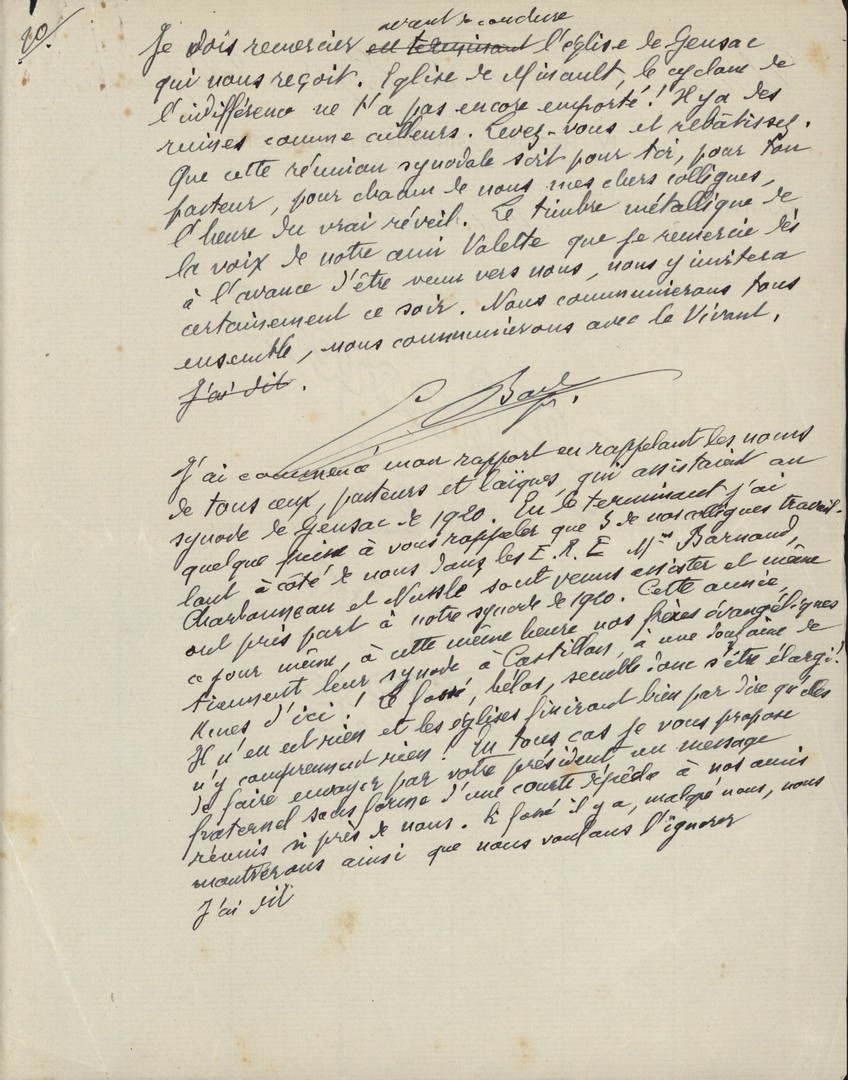 20/
avant de conclure
Je dois remercier en terminant l'église de Gensac
qui nous reçoit. Eglise de Minault, le cyclone de
l'indifférence ne t'a pas encore emporté! Il y a des
ruines comme ailleurs. Levez-vous et rebâtissez.
Que cette réunion synodale soit pour toi, pour ton
pasteur, pour chacun de nous mes chers collègues,
l'heure du vrai réveil. Le timbre métallique de
la voix de notre ami Valette que je remercie dès
à l'avance d'être venu vers nous, nous y invitera
certainement ce soir. Nous communierons tous
ensemble, nous communierons avec le Vivant.
J'ai dit.
J'ai commencé mon rapport en rappelant les noms
de tous ceux, pasteurs et laïques, qui assistaient au
synode de Gensac de 1920. En le terminant j'ai
quelque peine à vous rappeler que 3 de nos collègues travail-
lant à côté de nous dans les E. R. E Mrs Barnaud,
Charbonneau et Nusslé sont venus assister et même
ont pris part à notre synode de 1920. Cette année,
ce jour même, à cette même heure nos frères évangéliques
tiennent leur synode à Castillon, à une douzaine de
Kmes d'ici! Le fossé, hélas, semble donc s'être élargi!
Il n'en est rien et les églises finiront bien par dire qu'elles
n'y comprennent rien! En tous cas je vous propose
de faire envoyer par votre président un message
fraternel sous forme d'une courte dépêche à nos amis
réunis si près de nous. Le fossé il y a, malgré nous, nous
montrerons ainsi que nous voulons l'ignorer
J'ai dit